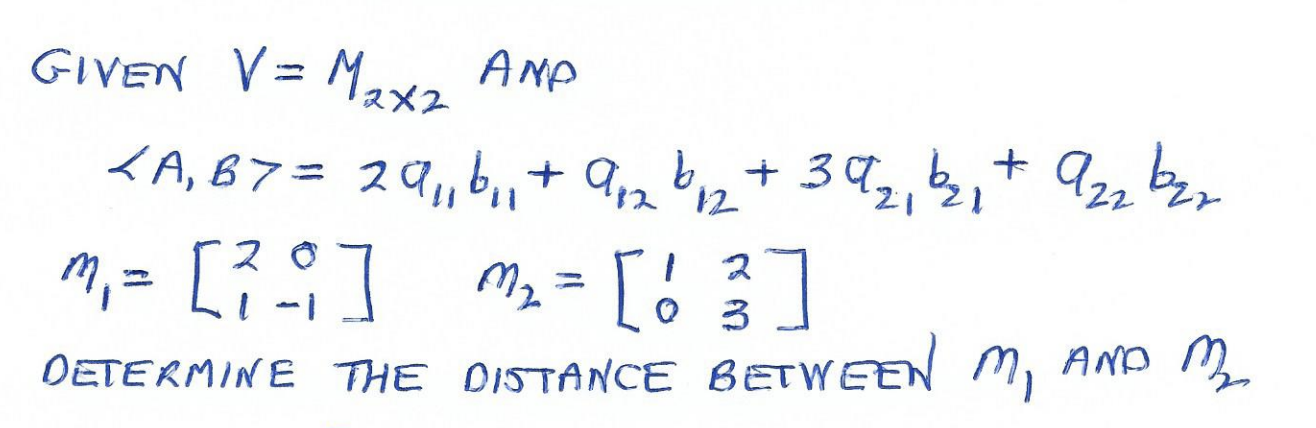 GIVEN V = M₂ₓ₂ AND
<A, B> = 2a₁₁b₁₁ + a₁₂b₁₂ + 3a₂₁b₂₁ + a₂₂b₂₂
m₁ = [2 0; 1 -1] m₂ = [1 2; 0 3]
DETERMINE THE DISTANCE BETWEEN m₁ AND m₂